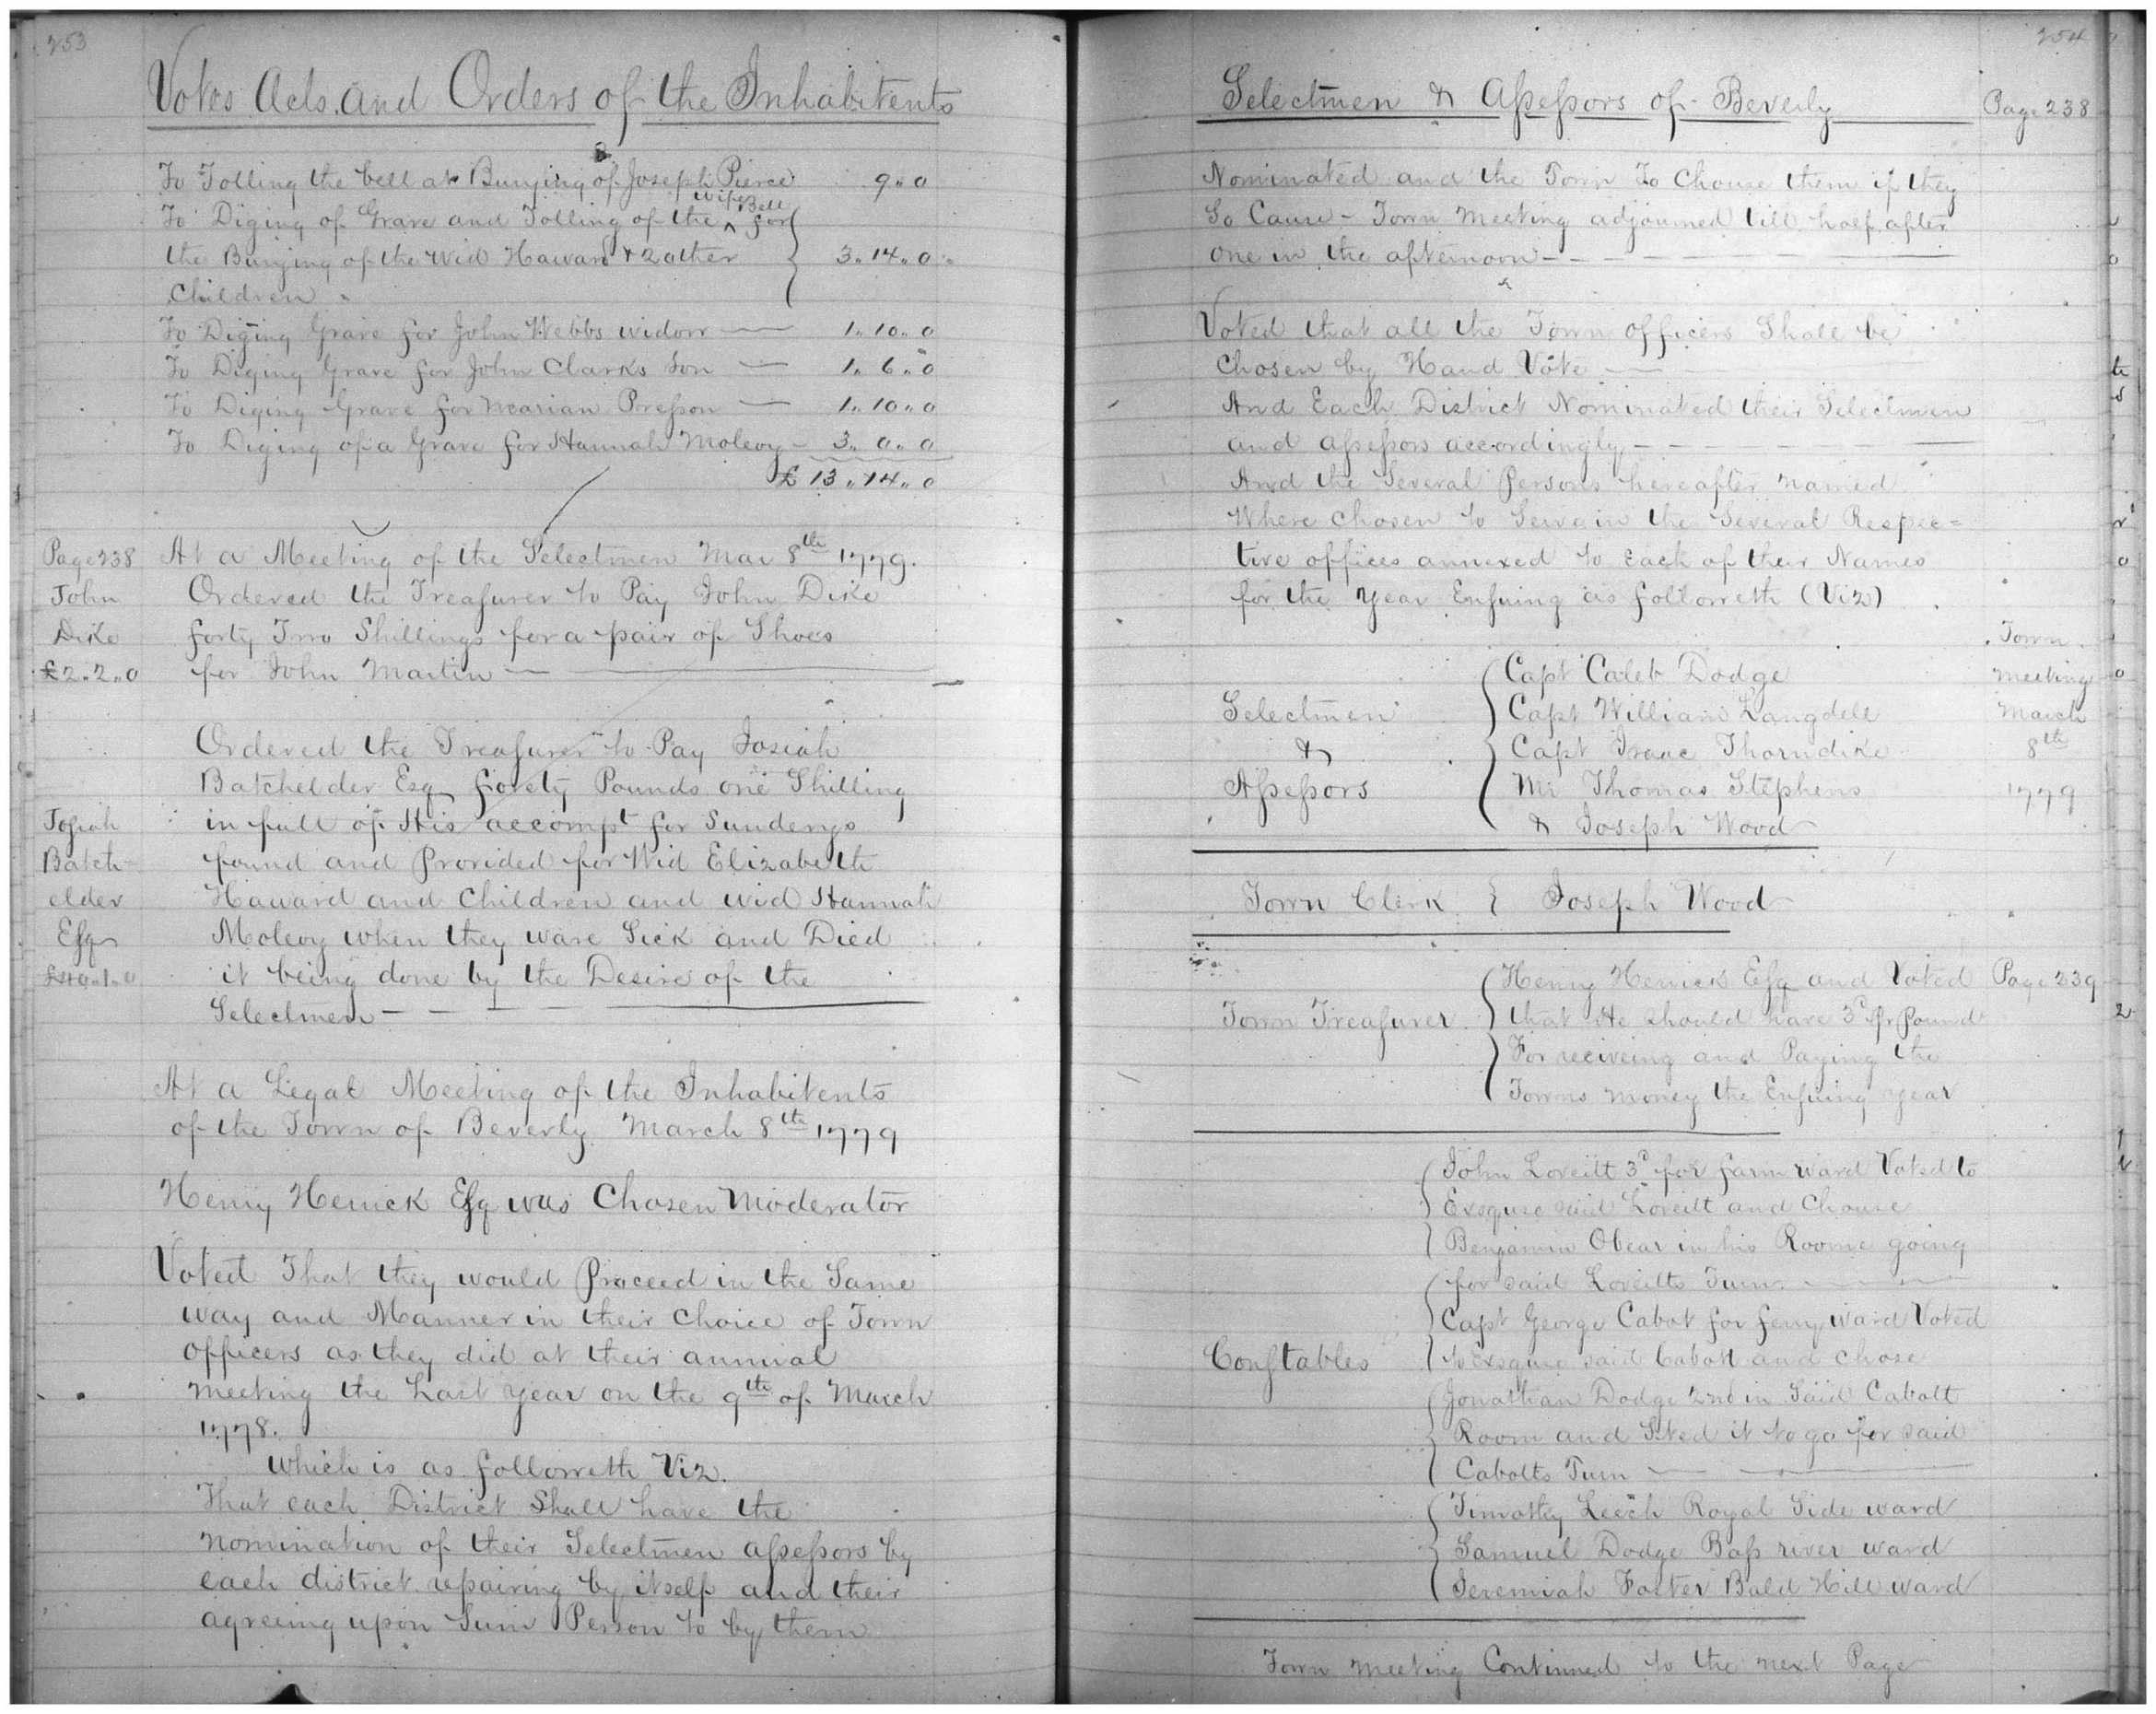 253
Votes Acts and Orders of the Inhabitents
To Tolling the bell at Burying of Joseph Pierce 9,,0
wife Bell
To Diging of Grave and Tolling of the ^ for
the Burying of the Wid Haward & 2 other 3,,14,,0
Children
To Diging Grave for John Webbs widow — 1,,10,,0
To Diging Grave for John Clarks Son — 1,,6,,0
To Diging Grave for Marian Presson — 1,,10,,0
To Diging of a Grave for Hannah Molcoy - 3,,0,,0
£ 13,,14,,0
Page 238 At a Meeting of the Selectmen Mar 8th 1779.
John Ordered the Treasurer to Pay John Dike
Dike forty Two Shillings for a pair of Shoes
£2,,2,,0 for John Martin —
Ordered the Treasurer to Pay Josiah
Batchelder Esq forety Pounds one Shilling
Josiah in full of His accompt for Sunderys
Batch- found and Provided for Wid Elizabeth
elder Haward and Children and Wid Hannah
Esq Molcoy when they ware Sick and Died
£40,,1,,0 it being done by the Desire of the
Selectmen — — — —
At a Legal Meeting of the Inhabitents
of the Town of Beverly March 8th 1779
Henry Herrick Esq was Chosen Moderator
Voted That they would Proceed in the Same
way and Manner in their Choice of Town
officers as they did at their annual
meeting the Last year on the 9th of March
1778.
Which is as followeth Viz.
That each District Shall have the
nomination of their Selectmen assessors by
each district repairing by itself and their
agreeing upon Sum Person to by them
254
Selectmen & Assessors of Beverly Page 238
Nominated and the Town To Chouse them if they
So Cause - Town Meeting adjourned till half after
one in the afternoon — — — —
Voted that all the Town officers Shall be
Chosen by Hand Vote —
And Each District Nominated their Selectmen
and assessors accordingly — — —
And the Several Persons hereafter named
Where Chosen to Serve in the Several Respec=
tive offices annexed to Each of their Names
for the year Ensuing as followeth (Viz)
Town
Capt Caleb Dodge meeting
Selectmen Capt William Langdell March
& Capt Isaac Thorndike 8th
Assessors Mr Thomas Stephens 1779
& Joseph Wood
Town Clerk } Joseph Wood
Henry Herrick Esq and Voted Page 239
Town Treasurer that He should have 3d pr Pound
For reciveing and Paying the
Towns money the Ensuing year
John Loveitt 3d for farm ward Voted to
Exsquse said Loveitt and Chouse
Benjamin Obear in his Roome going
for said Loveitts Turn. — — —
Capt George Cabot for ferry ward Voted
Constables to exsquse said Cabott and Chose
Jonathan Dodge 2nd in Said Cabott
Room and it to go for said
Cabotts Turn — —
Timothy Leech Royal Side ward
Samuel Dodge Bass river ward
Jeremiah Foster Bald Hill ward
Town meeting Continued to the next Page